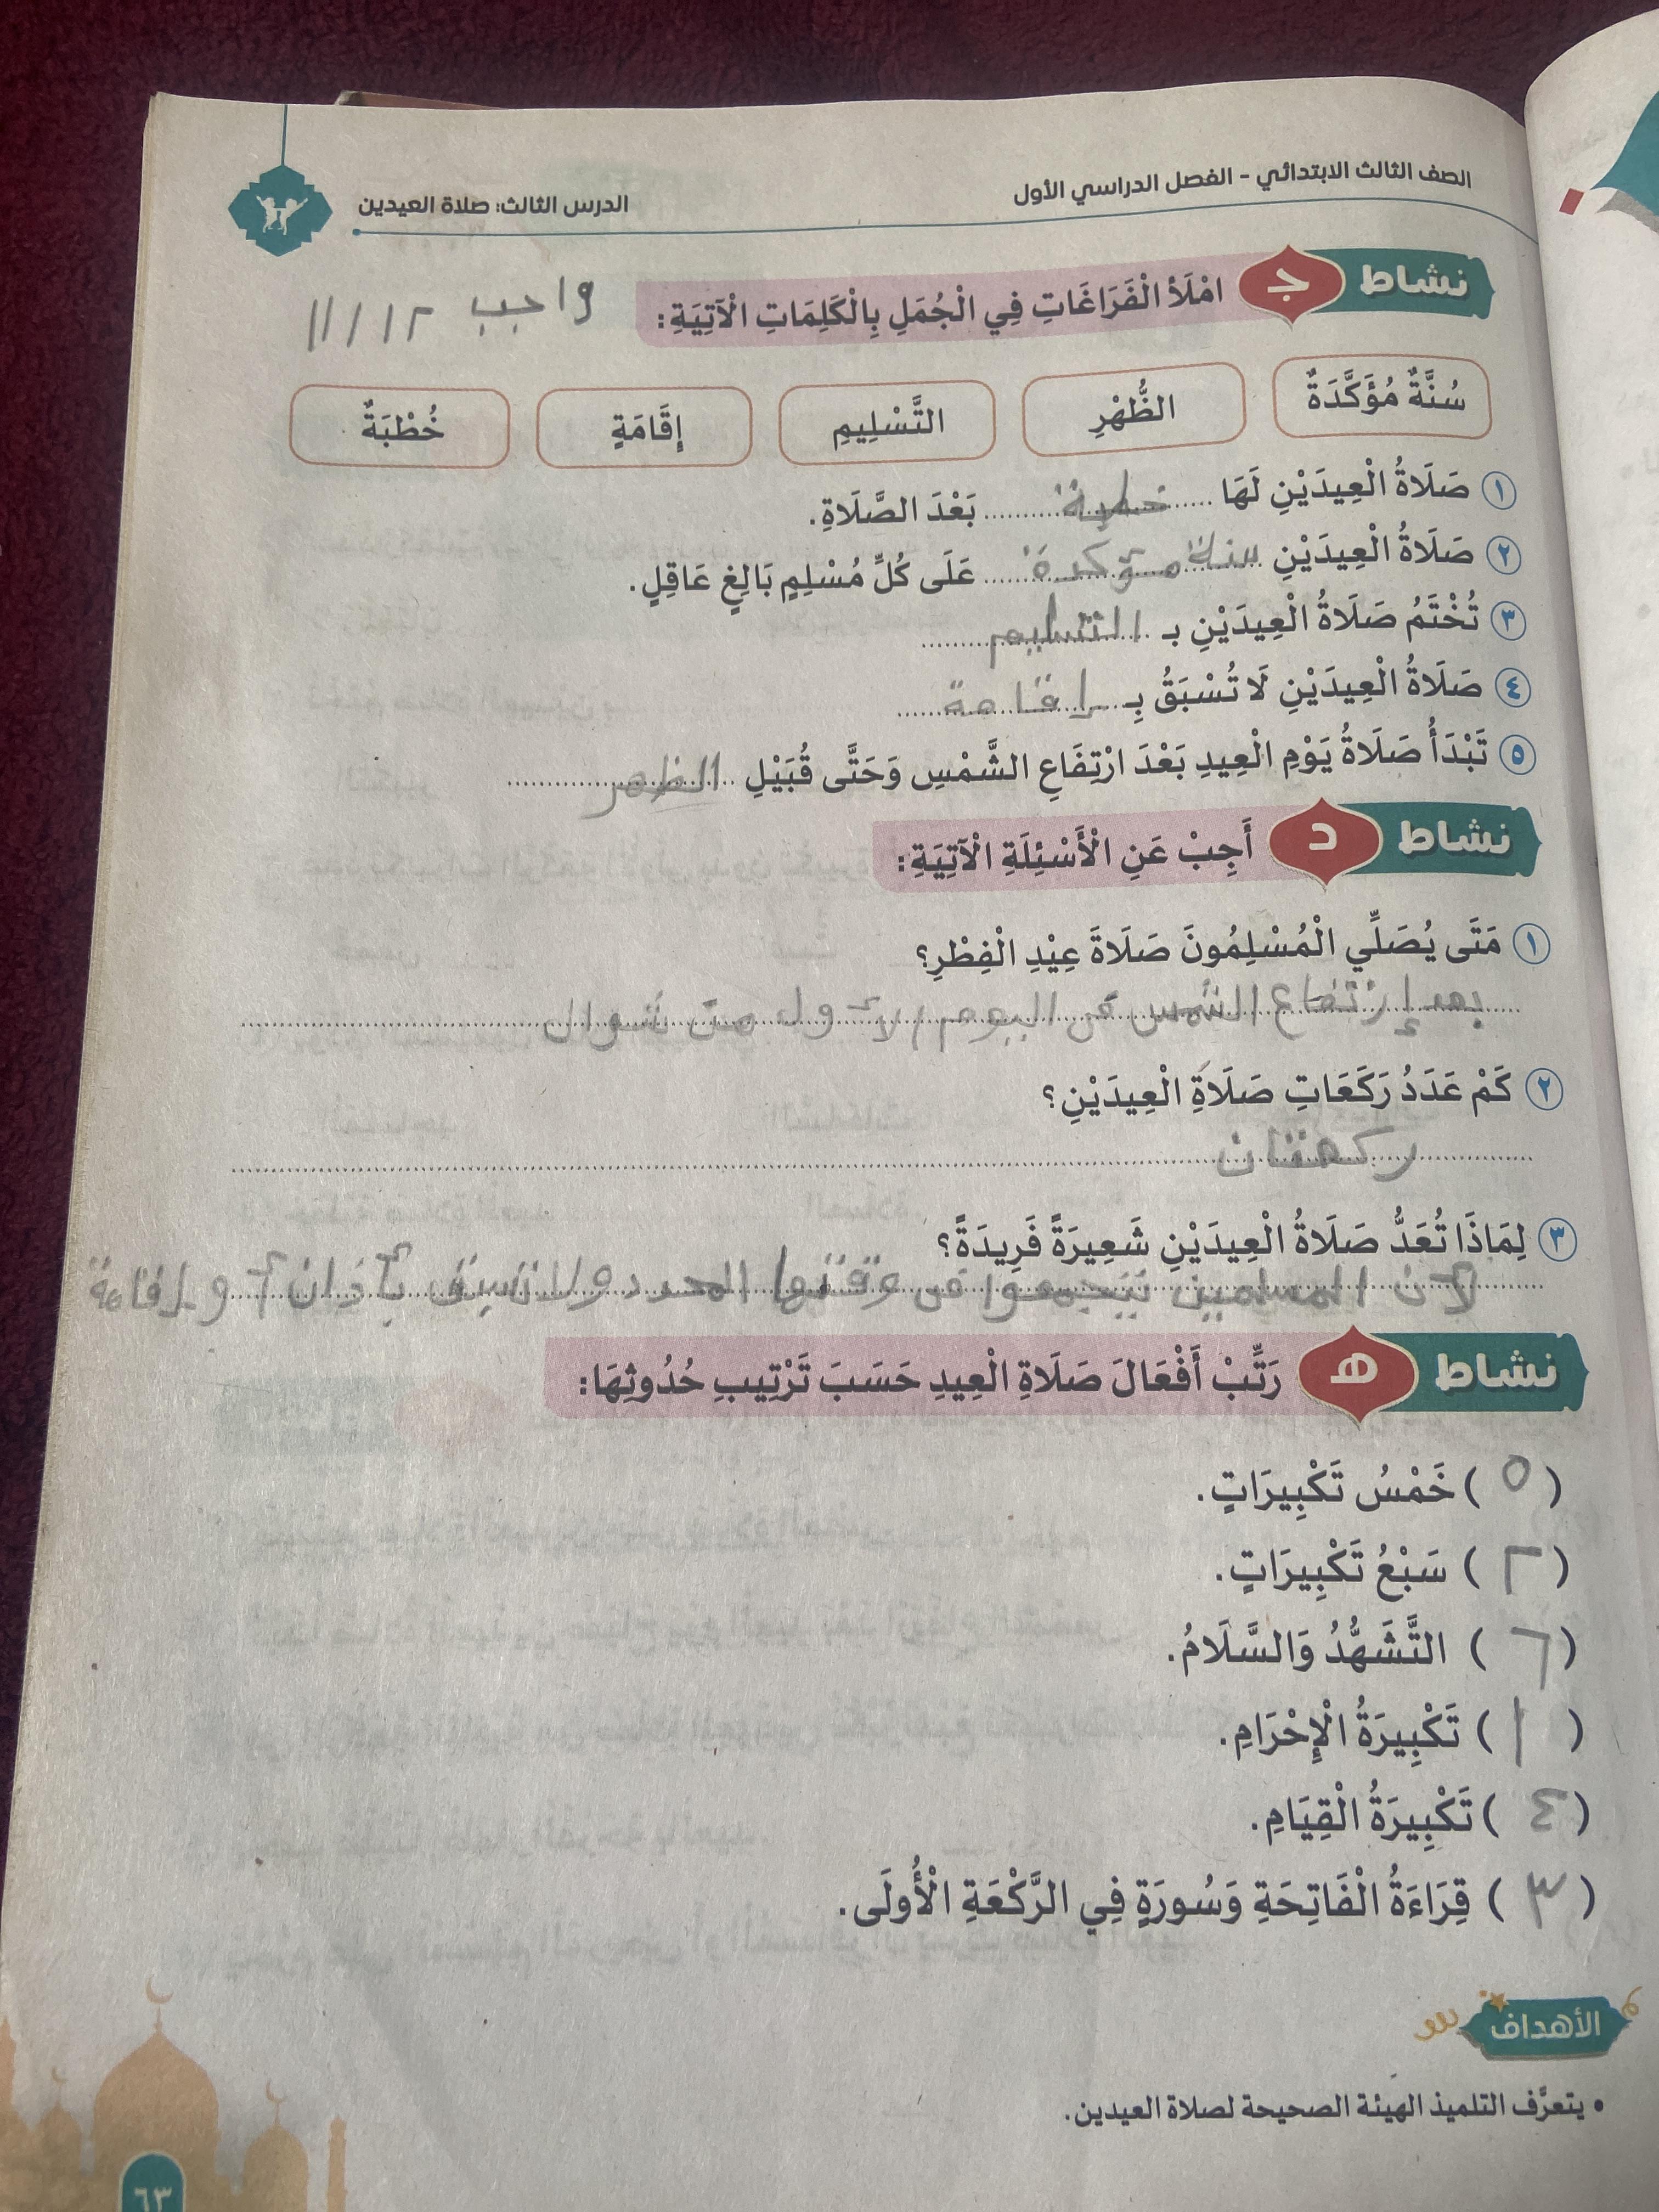 الصف الثالث الابتدائي - الفصل الدراسي الأول
الدرس الثالث: صلاة العيدين
نشاط ج امْلَأْ الْفَرَاغَاتِ فِي الْجُمَلِ بِالْكَلِمَاتِ الْآتِيَةِ:
واجب ١٢ / ١١
سُنَّةٌ مُؤَكَّدَةٌ الظُّهْرِ التَّسْلِيمِ إِقَامَةٍ خُطْبَةٌ
١ صَلَاةُ الْعِيدَيْنِ لَهَا خطبة بَعْدَ الصَّلَاةِ.
٢ صَلَاةُ الْعِيدَيْنِ سنة مؤكدة عَلَى كُلِّ مُسْلِمٍ بَالِغٍ عَاقِلٍ.
٣ تُخْتَمُ صَلَاةُ الْعِيدَيْنِ بـ التسليم
٤ صَلَاةُ الْعِيدَيْنِ لَا تُسْبَقُ بِـ إقامة
٥ تَبْدَأُ صَلَاةُ يَوْمِ الْعِيدِ بَعْدَ ارْتِفَاعِ الشَّمْسِ وَحَتَّى قُبَيْلِ الظهر
نشاط د أَجِبْ عَنِ الْأَسْئِلَةِ الْآتِيَةِ:
١ مَتَى يُصَلِّي الْمُسْلِمُونَ صَلَاةَ عِيْدِ الْفِطْرِ؟
بعد إرتفاع الشمس في اليوم الأول من شوال
٢ كَمْ عَدَدُ رَكَعَاتِ صَلَاةِ الْعِيدَيْنِ؟
ركعتان
٣ لِمَاذَا تُعَدُّ صَلَاةُ الْعِيدَيْنِ شَعِيرَةً فَرِيدَةً؟
لأن المسلمين يتجمعوا في وقتها المحدد ولا تسبق بأذان أو إقامة
نشاط هـ رَتِّبْ أَفْعَالَ صَلَاةِ الْعِيدِ حَسَبَ تَرْتِيبِ حُدُوثِهَا:
( ٥ ) خَمْسُ تَكْبِيرَاتٍ.
( ٢ ) سَبْعُ تَكْبِيرَاتٍ.
( ٦ ) التَّشَهُّدُ وَالسَّلَامُ.
( ١ ) تَكْبِيرَةُ الْإِحْرَامِ.
( ٤ ) تَكْبِيرَةُ الْقِيَامِ.
( ٣ ) قِرَاءَةُ الْفَاتِحَةِ وَسُورَةٍ فِي الرَّكْعَةِ الْأُولَى.
الأهداف
• يتعرَّف التلميذ الهيئة الصحيحة لصلاة العيدين.
٦٣